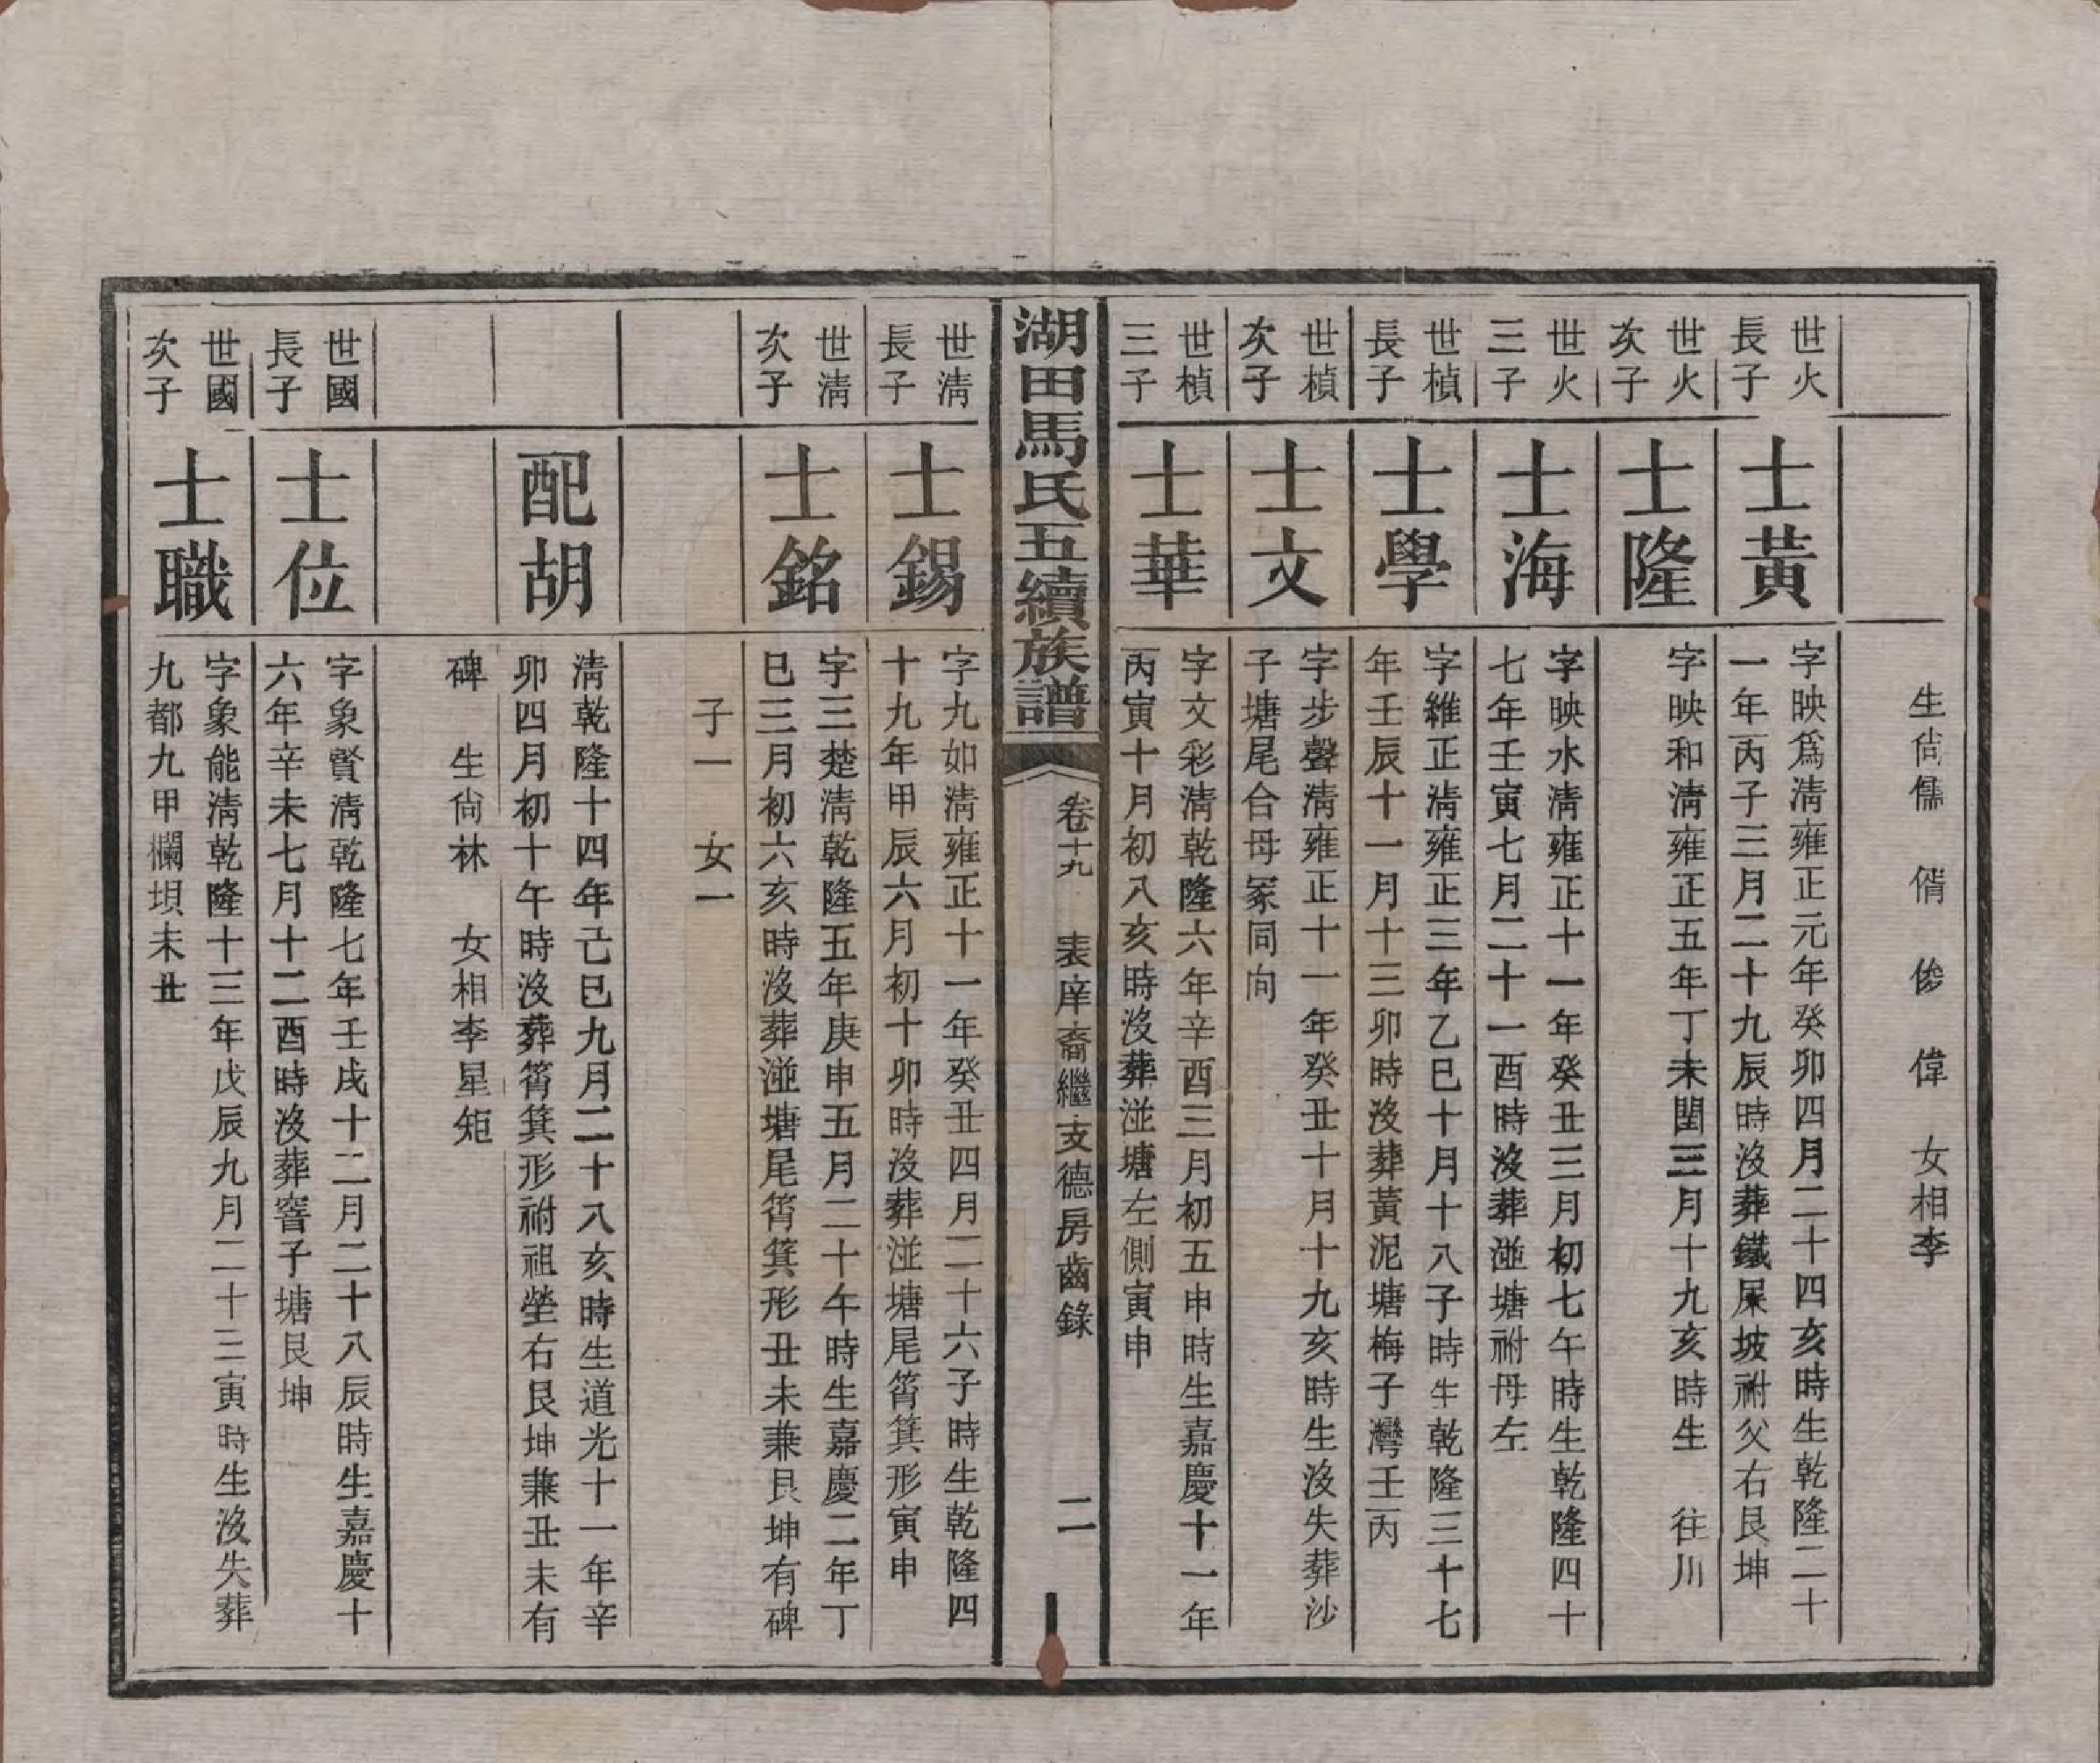 生尙儒　偦　俊　偉　女相李
世火
長子
士黃
字映爲淸雍正元年癸卯四月二十四亥時生乾隆二十
一年丙子三月二十九辰時沒葬鐵屎坡祔父右艮坤
世火
次子
士隆
字映和淸雍正五年丁未閏三月十九亥時生　往川
世火
三子
士海
字映水淸雍正十一年癸丑三月初七午時生乾隆四十
七年壬寅七月二十一酉時沒葬湴塘祔母左
世楨
長子
士學
字維正淸雍正三年乙巳十月十八子時生乾隆三十七
年壬辰十一月十三卯時沒葬黃泥塘梅子灣壬丙
世楨
次子
士文
字步聲淸雍正十一年癸丑十月十九亥時生沒失葬沙
子塘尾合母冢同向
世楨
三子
士華
字文彩淸乾隆六年辛酉三月初五申時生嘉慶十一年
丙寅十月初八亥時沒葬湴塘左側寅申
湖田馬氏五續族譜
卷十九　表庠裔繼支德房齒錄
二
世淸
長子
士錫
字九如淸雍正十一年癸丑四月二十六子時生乾隆四
十九年甲辰六月初十卯時沒葬湴塘尾筲箕形寅申
世淸
次子
士銘
字三楚淸乾隆五年庚申五月二十午時生嘉慶二年丁
巳三月初六亥時沒葬湴塘尾筲箕形丑未兼艮坤有碑
子一　女一
配胡
淸乾隆十四年己巳九月二十八亥時生道光十一年辛
卯四月初十午時沒葬筲箕形祔祖塋右艮坤兼丑未有
碑　生尙林　女相李星矩
世國
長子
士位
字象賢淸乾隆七年壬戌十二月二十八辰時生嘉慶十
六年辛未七月十二酉時沒葬窨子塘艮坤
世國
次子
士職
字象能淸乾隆十三年戊辰九月二十三寅時生沒失葬
九都九甲欄垻未丑